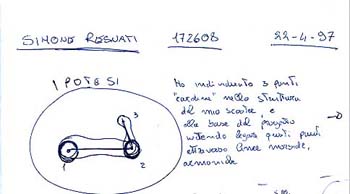 SIMONE ROSNATI 172608 22-4-97
IPOTESI
Ho individuato 3 punti
"cardine" nella struttura
del mio scooter, e
alla base del progetto
intendo legare questi punti
attraverso linee morbide,
armoniche
3
1
2